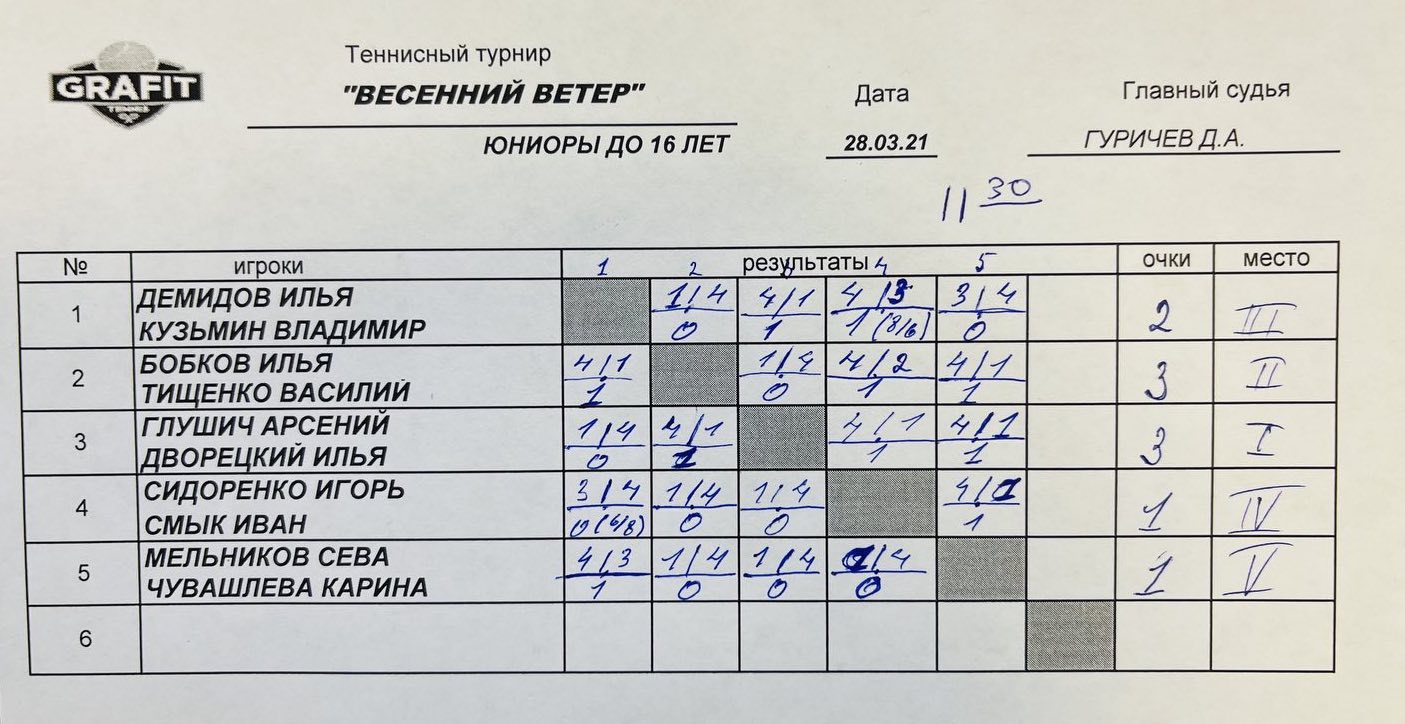 GRAFIT
TENNIS
Теннисный турнир
"ВЕСЕННИЙ ВЕТЕР"
ЮНИОРЫ ДО 16 ЛЕТ
Дата
28.03.21
Главный судья
ГУРИЧЕВ Д.А.
11 30
№ игроки результаты очки место
1 2 3 4 5
1 ДЕМИДОВ ИЛЬЯ 1/4 4/1 4/3 3/4 2 III
КУЗЬМИН ВЛАДИМИР 0 1 1 (8/6) 0
2 БОБКОВ ИЛЬЯ 4/1 1/4 4/2 4/1 3 II
ТИЩЕНКО ВАСИЛИЙ 1 0 1 1
3 ГЛУШИЧ АРСЕНИЙ 1/4 4/1 4/1 4/1 3 I
ДВОРЕЦКИЙ ИЛЬЯ 0 1 1 1
4 СИДОРЕНКО ИГОРЬ 3/4 1/4 1/4 4/ 1 IV
СМЫК ИВАН 0 (6/8) 0 0 1
5 МЕЛЬНИКОВ СЕВА 4/3 1/4 1/4 /4 1 V
ЧУВАШЛЕВА КАРИНА 1 0 0 0
6